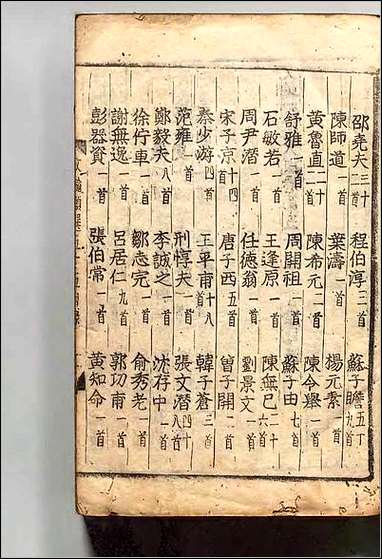 邵堯夫三十首 程伯淳二首 蘇子瞻五十九首
陳師道一首 葉濤一首 楊元素一首
黃魯直二十首 陳希元二首 陳令舉一首
舒雅一首 周開祖一首 蘇子由七首
石敏若一首 王逢原一首 陳無已二十六首
周尹潛一首 任德翁一首 劉景文一首
宋子京十四首 唐子西五首 曾子開一首
秦少游四首 王平甫十八首 韓子蒼三首
范雍一首 刑惇夫一首 張文潛十八首
鄭毅夫八首 李誠之一首 沈存中一首
徐仲車一首 鄒志完一首 俞秀老一首
謝無逸一首 呂居仁九首 郭功甫一首
彭器資一首 張伯常一首 黃知命一首